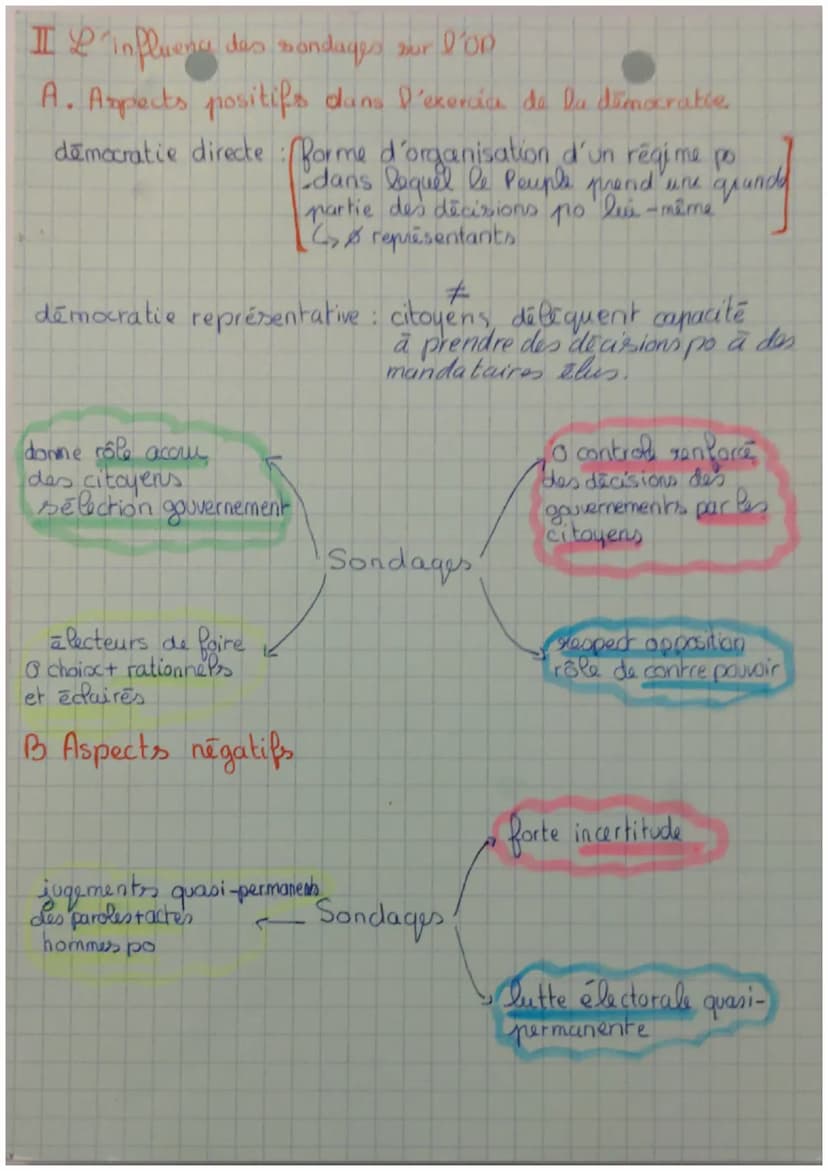 II L'influence des sondages sur l'OP
A. Aspects positifs dans l'exercice de la démocratie
démocratie directe : [forme d'organisation d'un régime po
dans lequel le Peuple prend une grande
partie des décisions po lui-même
↳ Ø représentants]
≠
démocratie représentative : citoyens délèguent capacité
à prendre des décisions po à des
mandataires élus.
donne rôle accru
des citoyens
sélection gouvernement
O contrôle renforcé
des décisions des
gouvernements par les
citoyens
Sondages
électeurs de faire
O choix + rationnels
et éclairés
respect opposition
rôle de contre pouvoir
B Aspects négatifs
forte incertitude
jugements quasi-permanents
des paroles + actes
hommes po
Sondages
lutte électorale quasi-
permanente